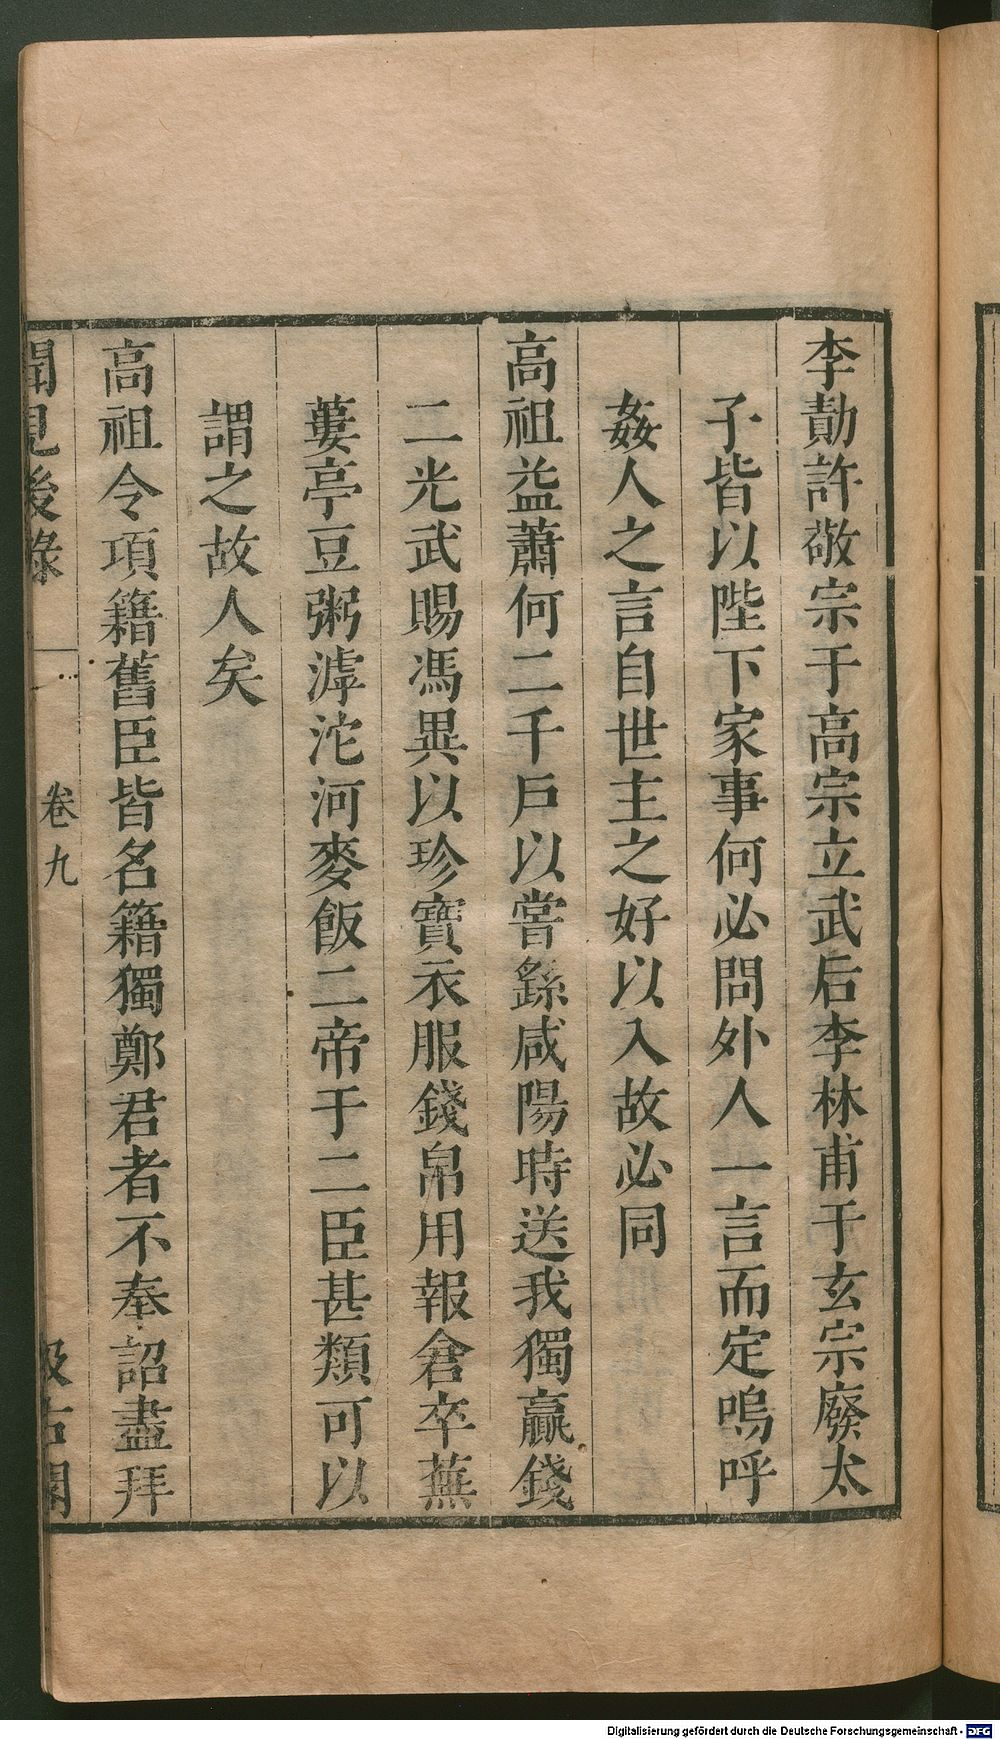 李勣許敬宗于高宗立武后李林甫于玄宗廢太
子皆以陛下家事何必問外人一言而定嗚呼
姦人之言自世主之好以入故必同
高祖益蕭何二千戶以嘗繇咸陽時送我獨贏錢
二光武賜馮異以珍寶衣服錢帛用報倉卒蕪
蔞亭豆粥滹沱河麥飯二帝于二臣甚類可以
謂之故人矣
高祖令項籍舊臣皆名籍獨鄭君者不奉詔盡拜
聞見後錄 卷九 汲古閣
Digitalisierung gefördert durch die Deutsche Forschungsgemeinschaft - DFG